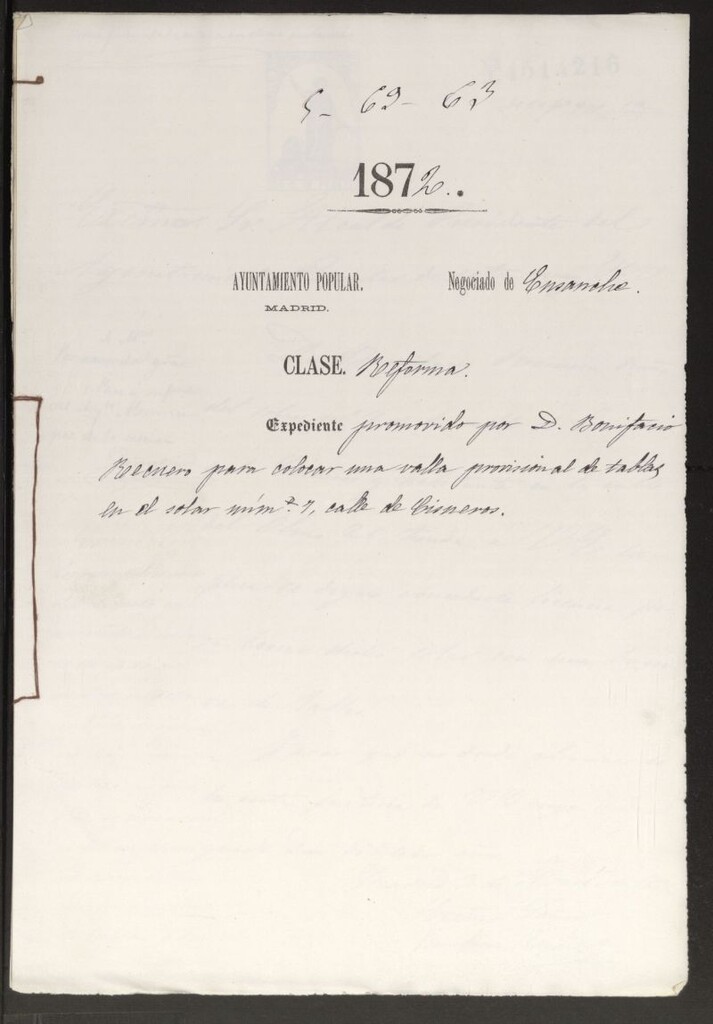 5-69-63
1872.
AYUNTAMIENTO POPULAR. Negociado de Ensanche.
MADRID.
CLASE. Reforma.
Expediente promovido por D. Bonifacio
Recuero para colocar una valla provisional de tablas
en el solar núm.º 7, calle de Cisneros.